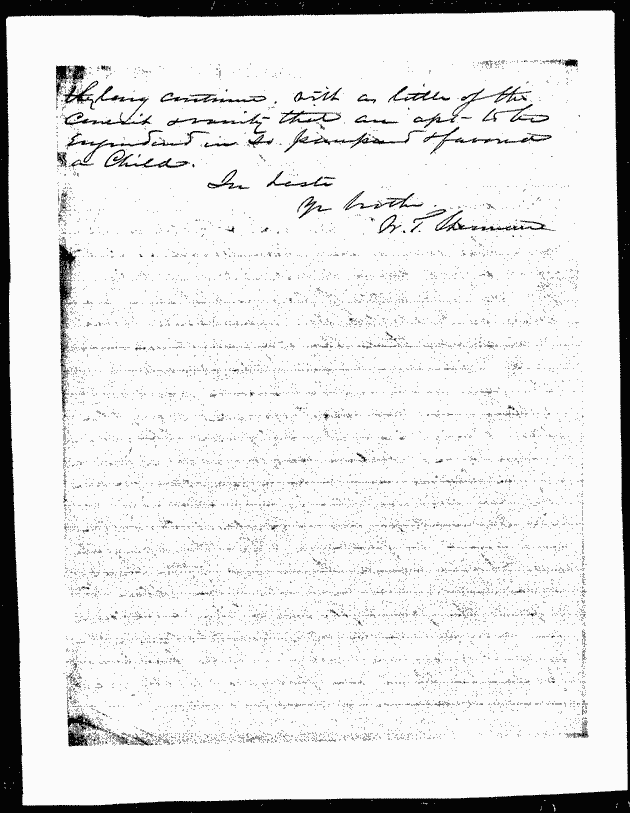 they long continue, with as little of the
conceit & vanity that are apt to be
engendered in so pampered & favored
a Child.
In haste
Yr brother
W. T. Sherman